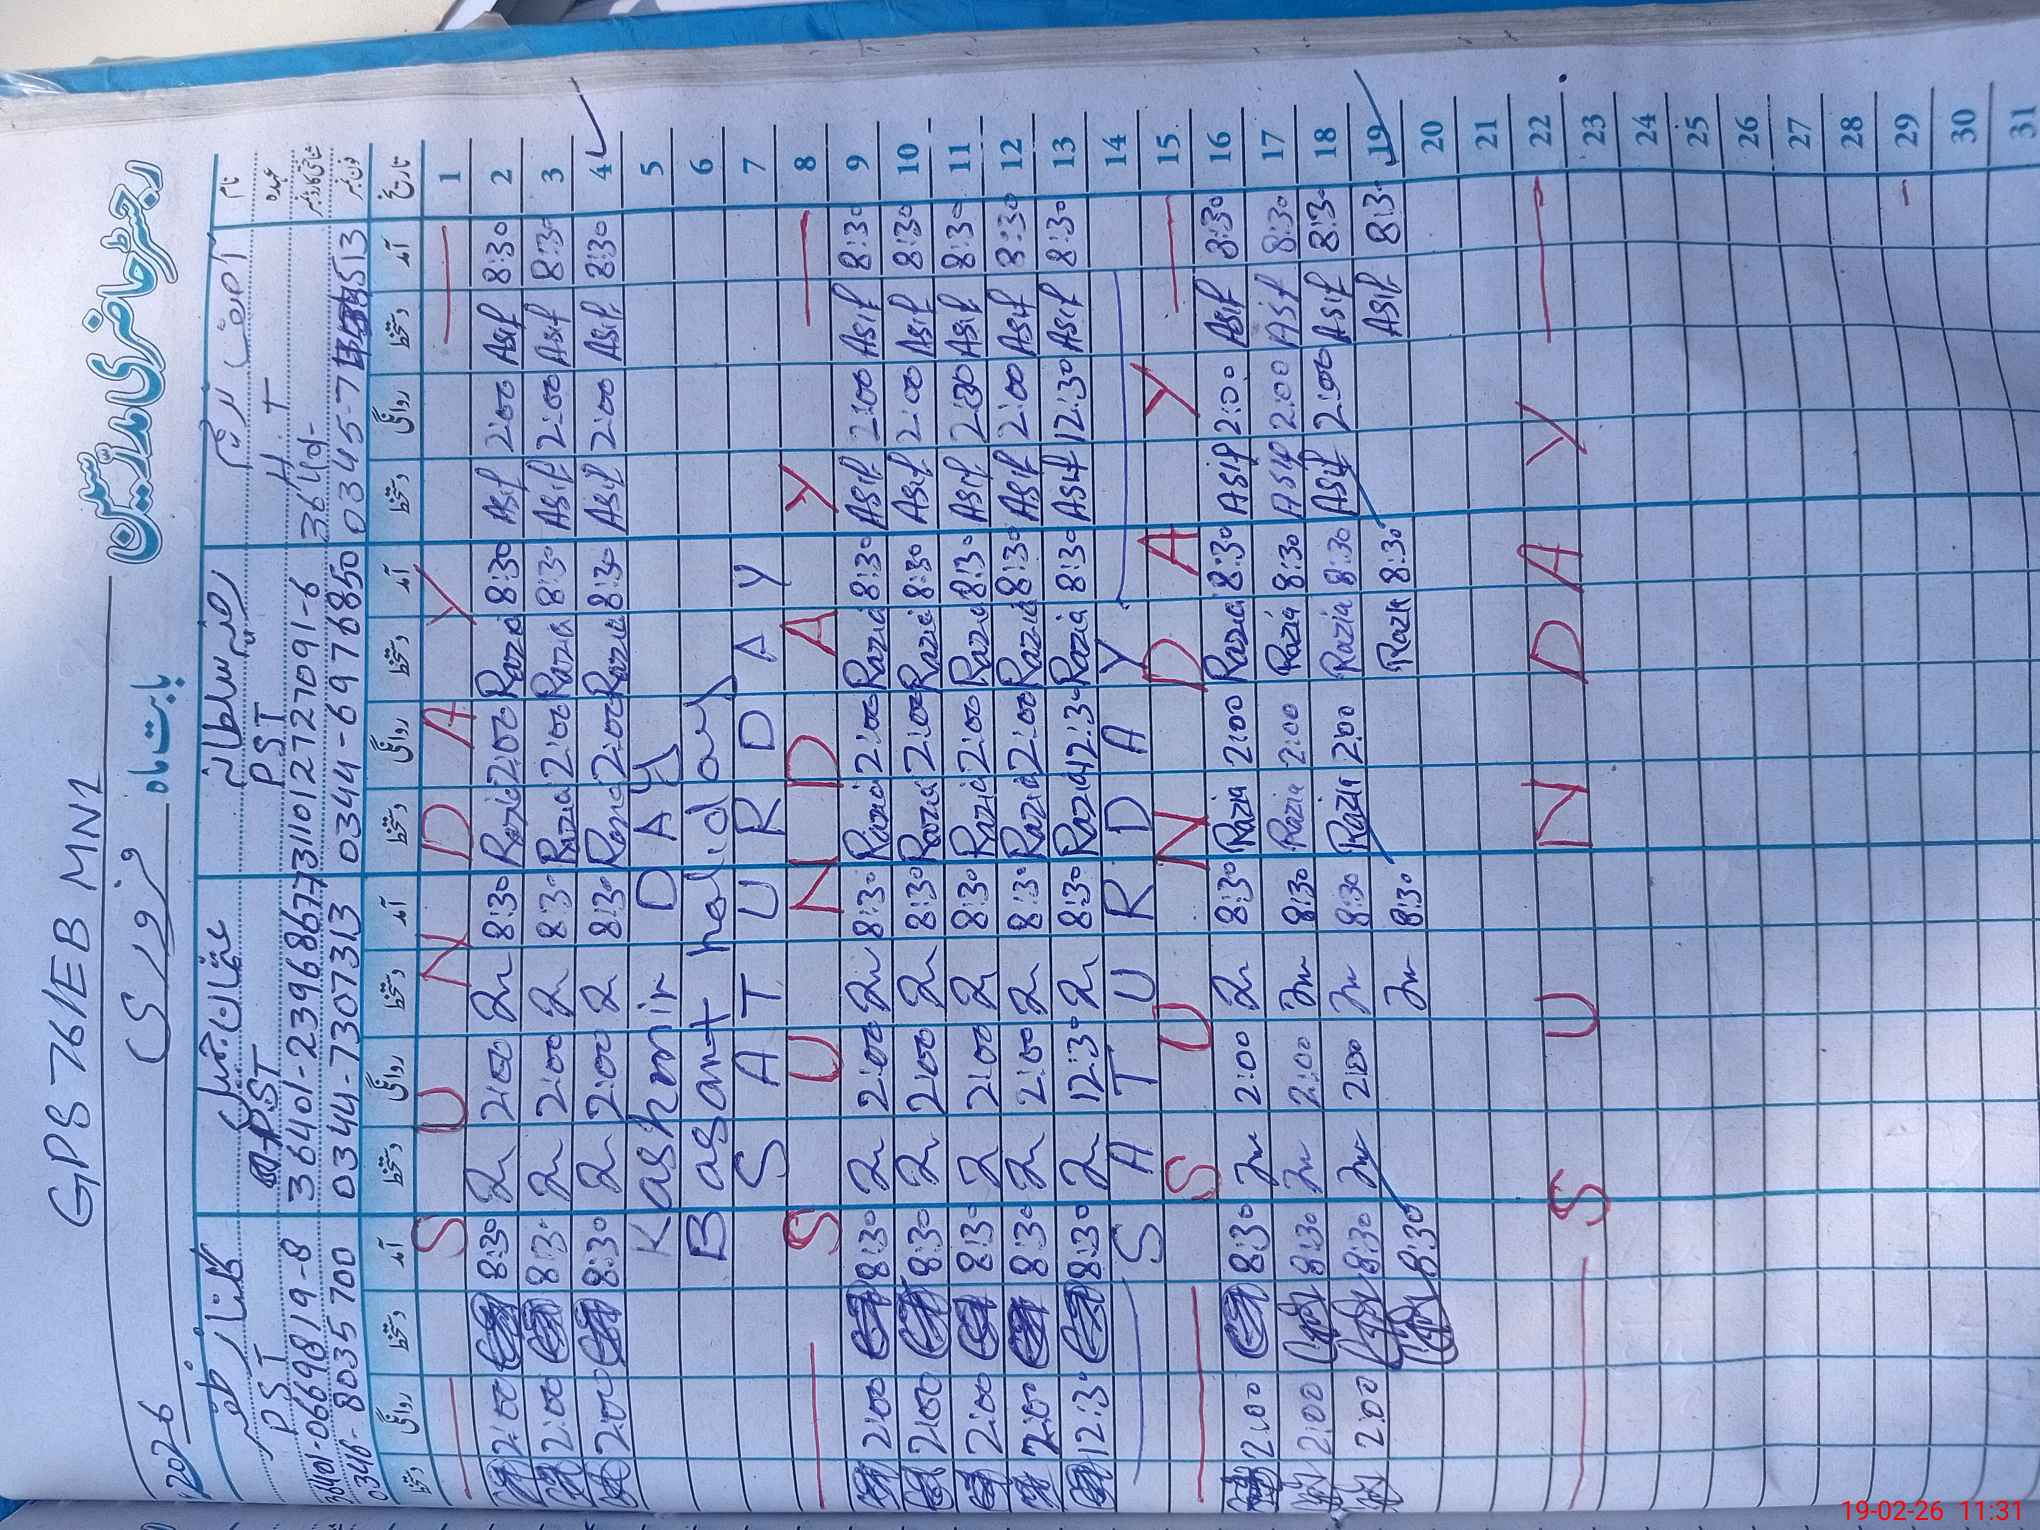 GPS 76/EB MN1
رجسٹر حاضری ملازمین
2026 فروری بابت ماہ
نام آصف رضیہ سلطانہ
عہدہ H.T PST PST PST
36401-0669819-8 36401-2396867-7 311012727091-6
0346-8035700 0344-7307313 0344-6976850 فون نمبر
تاریخ آمد دستخط روانگی دستخط آمد دستخط روانگی دستخط آمد دستخط روانگی دستخط آمد دستخط روانگی دستخط
SUNDAY 1
2:00 8:30 2:00 8:30 Razia 2:00 Razia 8:30 Asif 2:00 Asif 8:30 2
2:00 8:30 2:00 8:30 Razia 2:00 Razia 8:30 Asif 2:00 Asif 8:30 3
2:00 8:30 2:00 8:30 Razia 2:00 Razia 8:30 Asif 2:00 Asif 8:30 4
Kashmir DAY 5
Basant holiday 6
SATURDAY 7
SUNDAY 8
2:00 8:30 2:00 8:30 Razia 2:00 Razia 8:30 Asif 2:00 Asif 8:30 9
2:00 8:30 2:00 8:30 Razia 2:00 Razia 8:30 Asif 2:00 Asif 8:30 10
2:00 8:30 2:00 8:30 Razia 2:00 Razia 8:30 Asif 2:00 Asif 8:30 11
2:00 8:30 2:00 8:30 Razia 2:00 Razia 8:30 Asif 2:00 Asif 8:30 12
12:30 8:30 12:30 8:30 Razia 12:30 Razia 8:30 Asif 12:30 Asif 8:30 13
SATURDAY 14
SUNDAY 15
2:00 8:30 2:00 8:30 Razia 2:00 Razia 8:30 Asif 2:00 Asif 8:30 16
2:00 8:30 2:00 8:30 Razia 2:00 Razia 8:30 Asif 2:00 Asif 8:30 17
2:00 8:30 2:00 8:30 Razia 2:00 Razia 8:30 Asif 2:00 Asif 8:30 18
8:30 8:30 Razia 8:30 Asif 8:30 19
20
21
SUNDAY 22
23
24
25
26
27
28
29
30
31
19-02-26 11:31